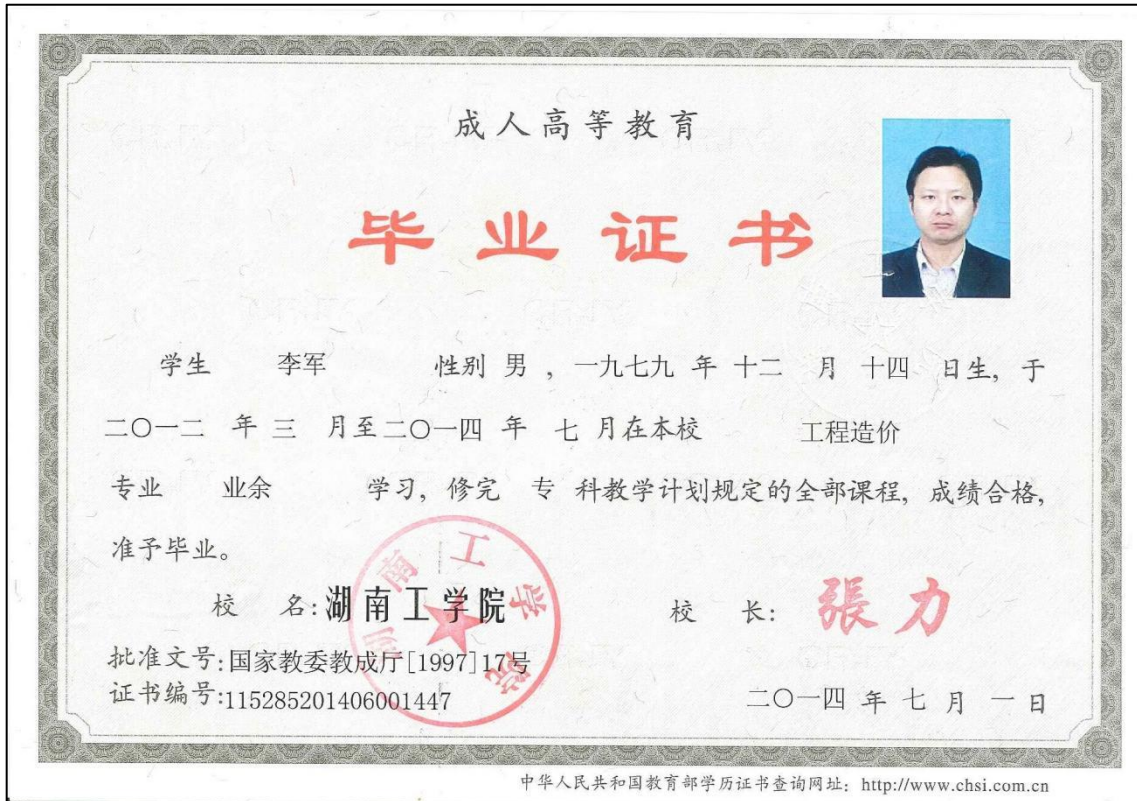 成人高等教育
毕业证书
学生 李军 性别 男 , 一九七九 年 十二 月 十四 日生, 于
二〇一二 年 三 月至二〇一四 年 七 月在本校 工程造价
专业 业余 学习, 修完 专 科教学计划规定的全部课程, 成绩合格,
准予毕业。
校 名: 湖南工学院
校 长: 張力
批准文号: 国家教委教成厅[1997]17号
证书编号: 115285201406001447
二〇一四 年 七 月 一 日
湖南工学院
中华人民共和国教育部学历证书查询网址: http://www.chsi.com.cn